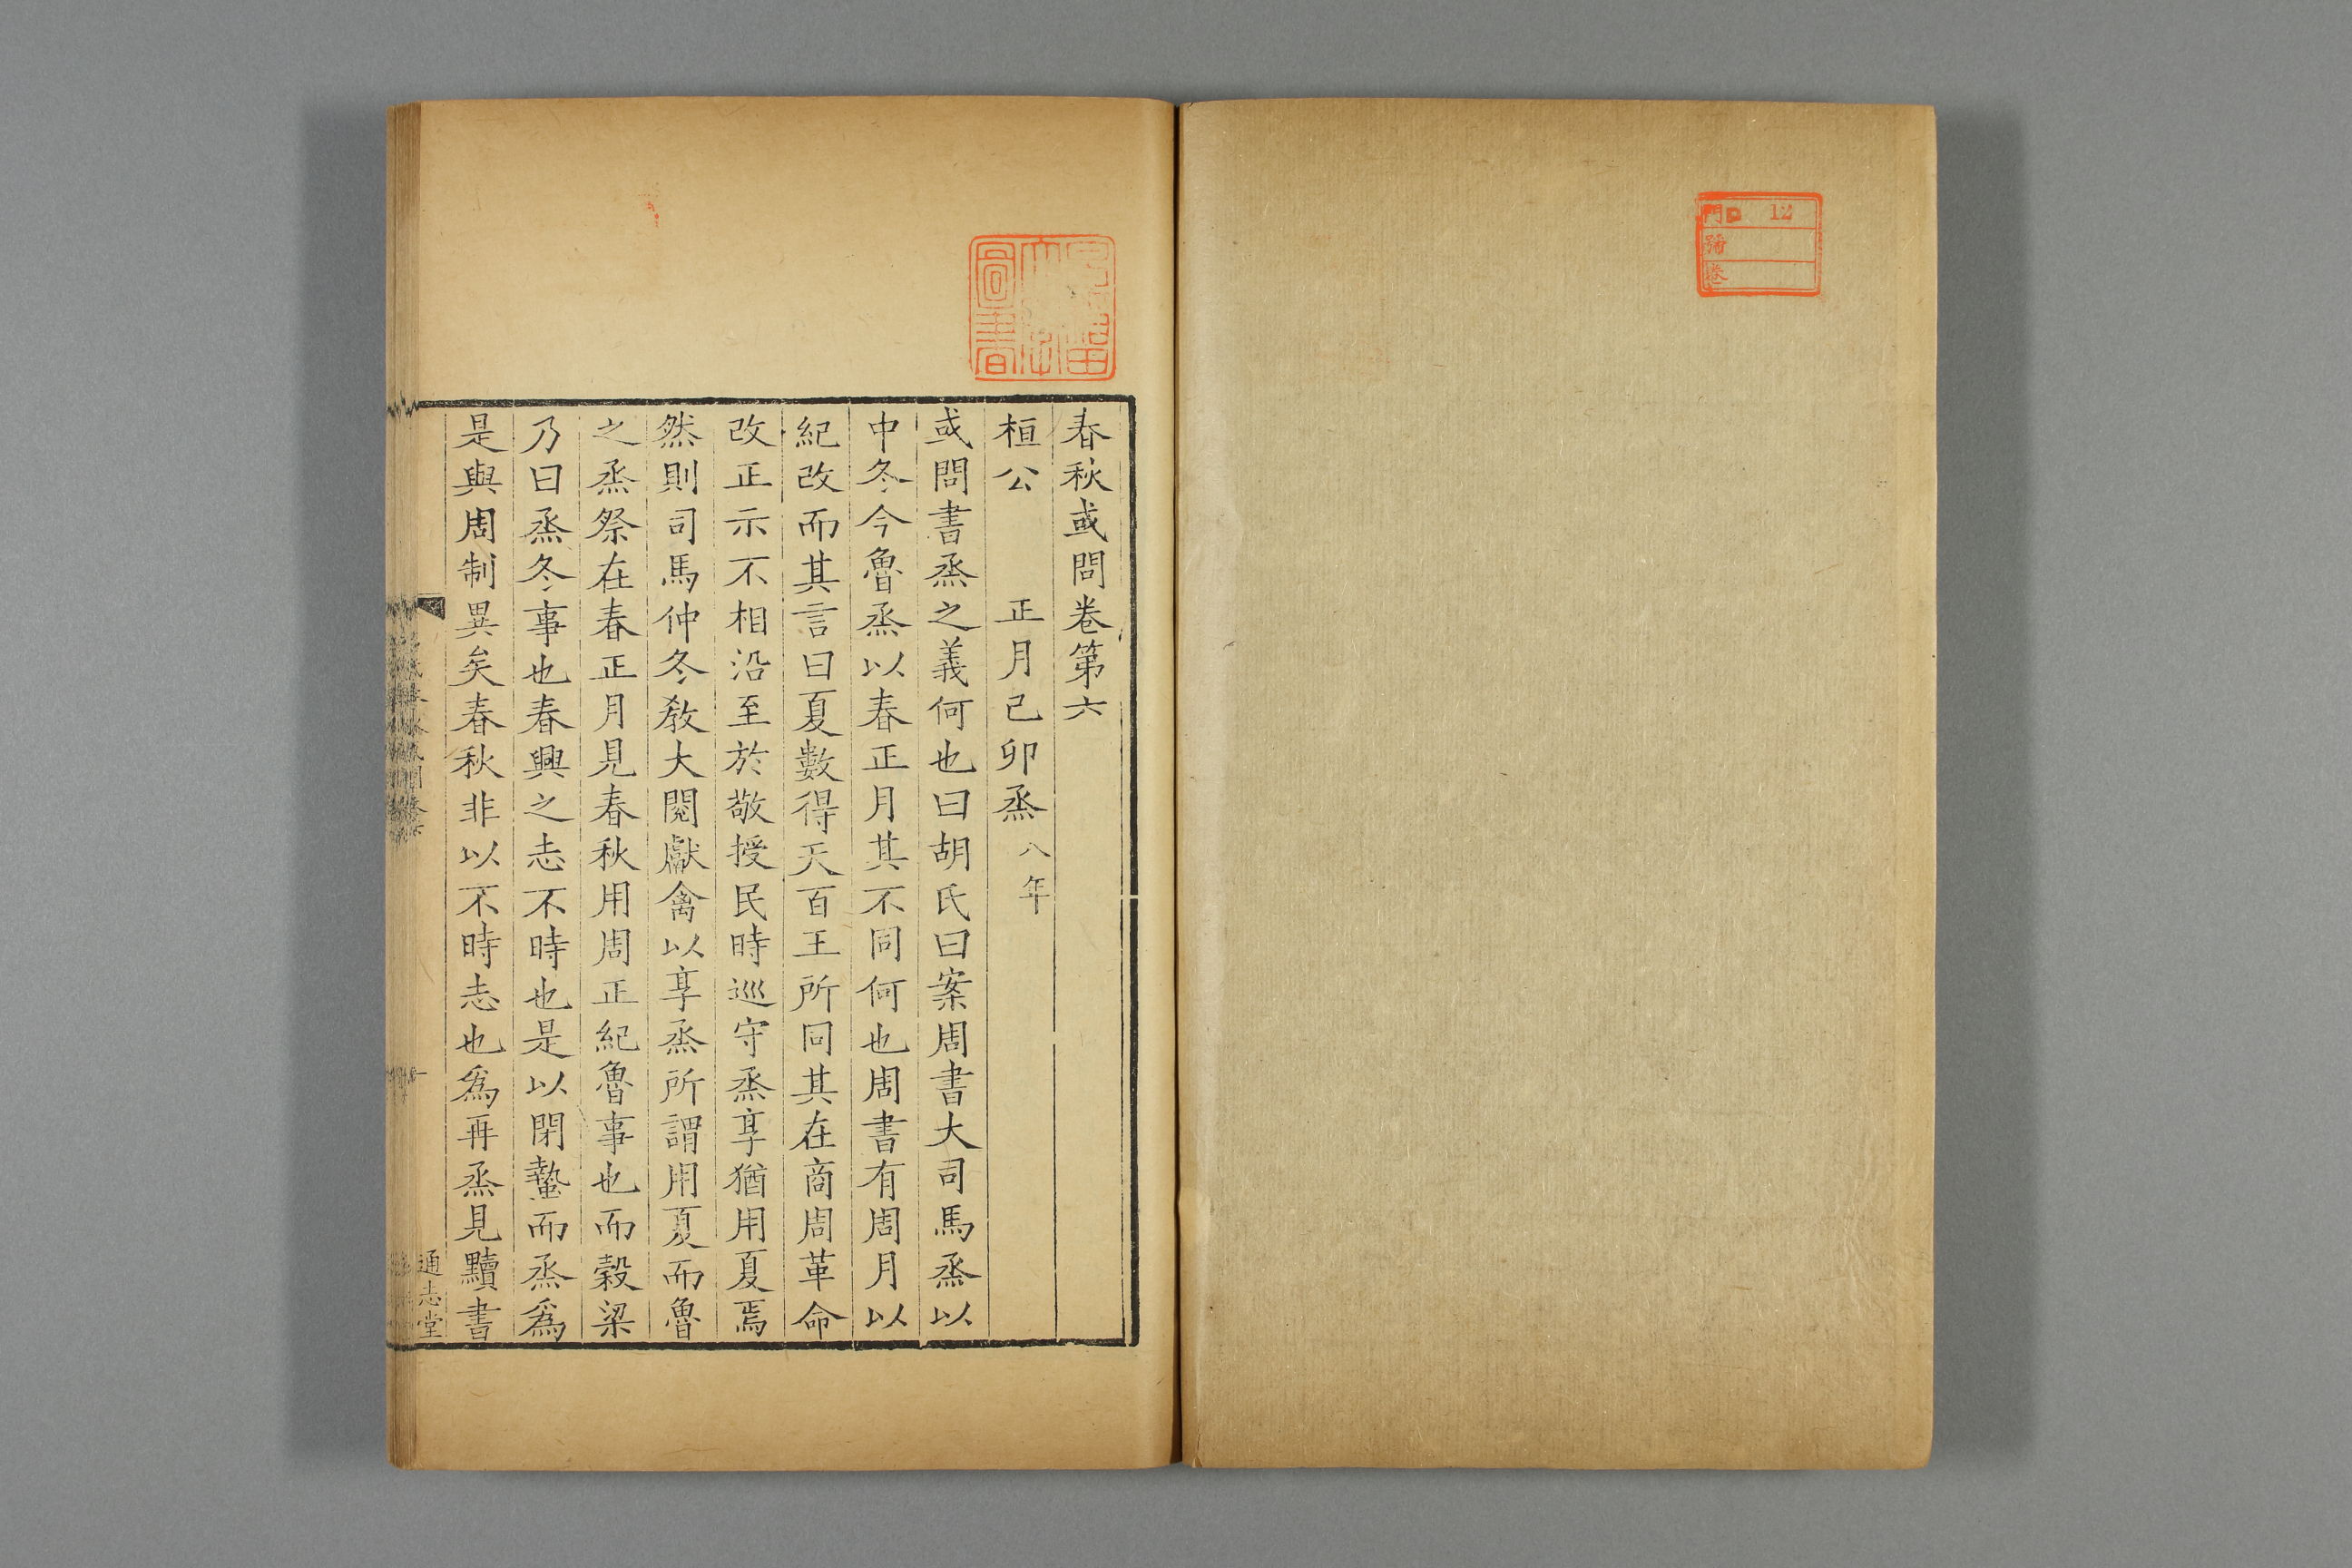 門 12
號
卷
圖書
春秋或問卷第六
桓公 正月己卯烝 八年
或問書烝之義何也曰胡氏曰案周書大司馬烝以
中冬今魯烝以春正月其不同何也周書有周月以
紀改而其言曰夏數得天百王所同其在商周革命
改正示不相沿至於敬授民時巡守烝享猶用夏焉
然則司馬仲冬敎大閱獻禽以享烝所謂用夏而魯
之烝祭在春正月見春秋用周正紀魯事也而穀梁
乃曰烝冬事也春興之志不時也是以閉蟄而烝爲
是與周制異矣春秋非以不時志也爲再烝見黷書
通志堂